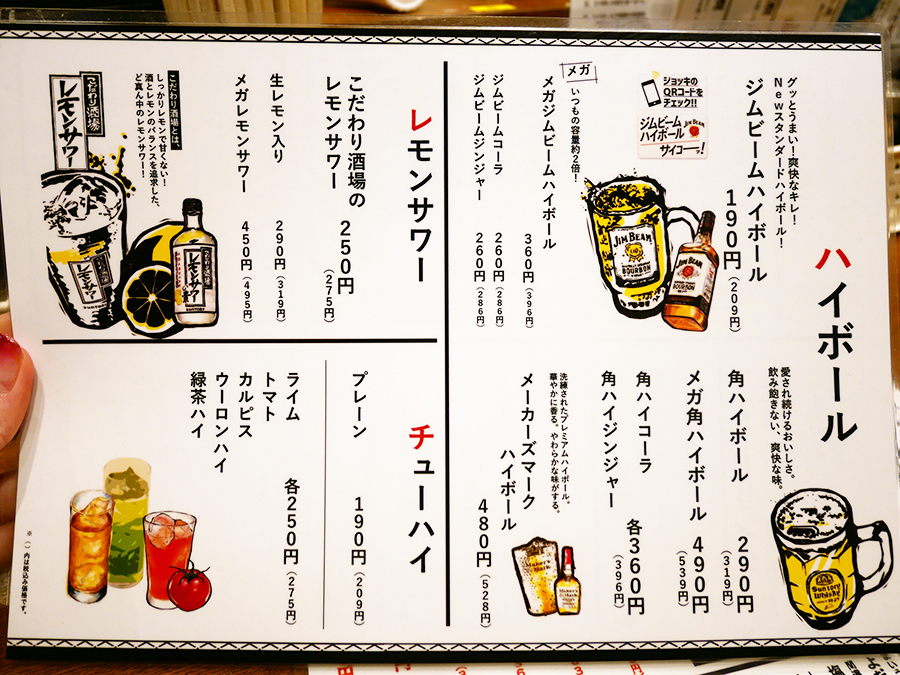 ハイボール
グッとうまい！爽快なキレ！
Newスタンダードハイボール！
ジムビームハイボール
190円(209円)
ジョッキの
QRコードを
チェック!!
ジムビーム
ハイボール
JIM BEAM
サイコーッ!
JIM BEAM
BOURBON
JIM BEAM
BOURBON
メガ
いつもの容量約2倍！
メガジムビームハイボール
360円(396円)
ジムビームコーラ 260円(286円)
ジムビームジンジャー 260円(286円)
愛され続けるおいしさ。
飲み飽きない、爽快な味。
角ハイボール 290円(319円)
メガ角ハイボール 490円(539円)
角ハイコーラ
角ハイジンジャー
各360円(396円)
洗練されたプレミアムハイボール。
華やかに香る。やわらかな味がする。
メーカーズマーク
ハイボール
480円(528円)
Maker's Mark
Suntory
Whisky
レモンサワー
こだわり酒場の
レモンサワー
250円(275円)
生レモン入り 290円(319円)
メガレモンサワー 450円(495円)
こだわり酒場とは、
しっかりレモンで甘くない！
酒とレモンのバランスを追求した、
ど真ん中のレモンサワー！
こだわり酒場
レモンサワー
レモンサワー
レモンサワー
SUNTORY
チューハイ
プレーン 190円(209円)
ライム
トマト
カルピス
ウーロンハイ
緑茶ハイ
各250円(275円)
※()内は税込み価格です。